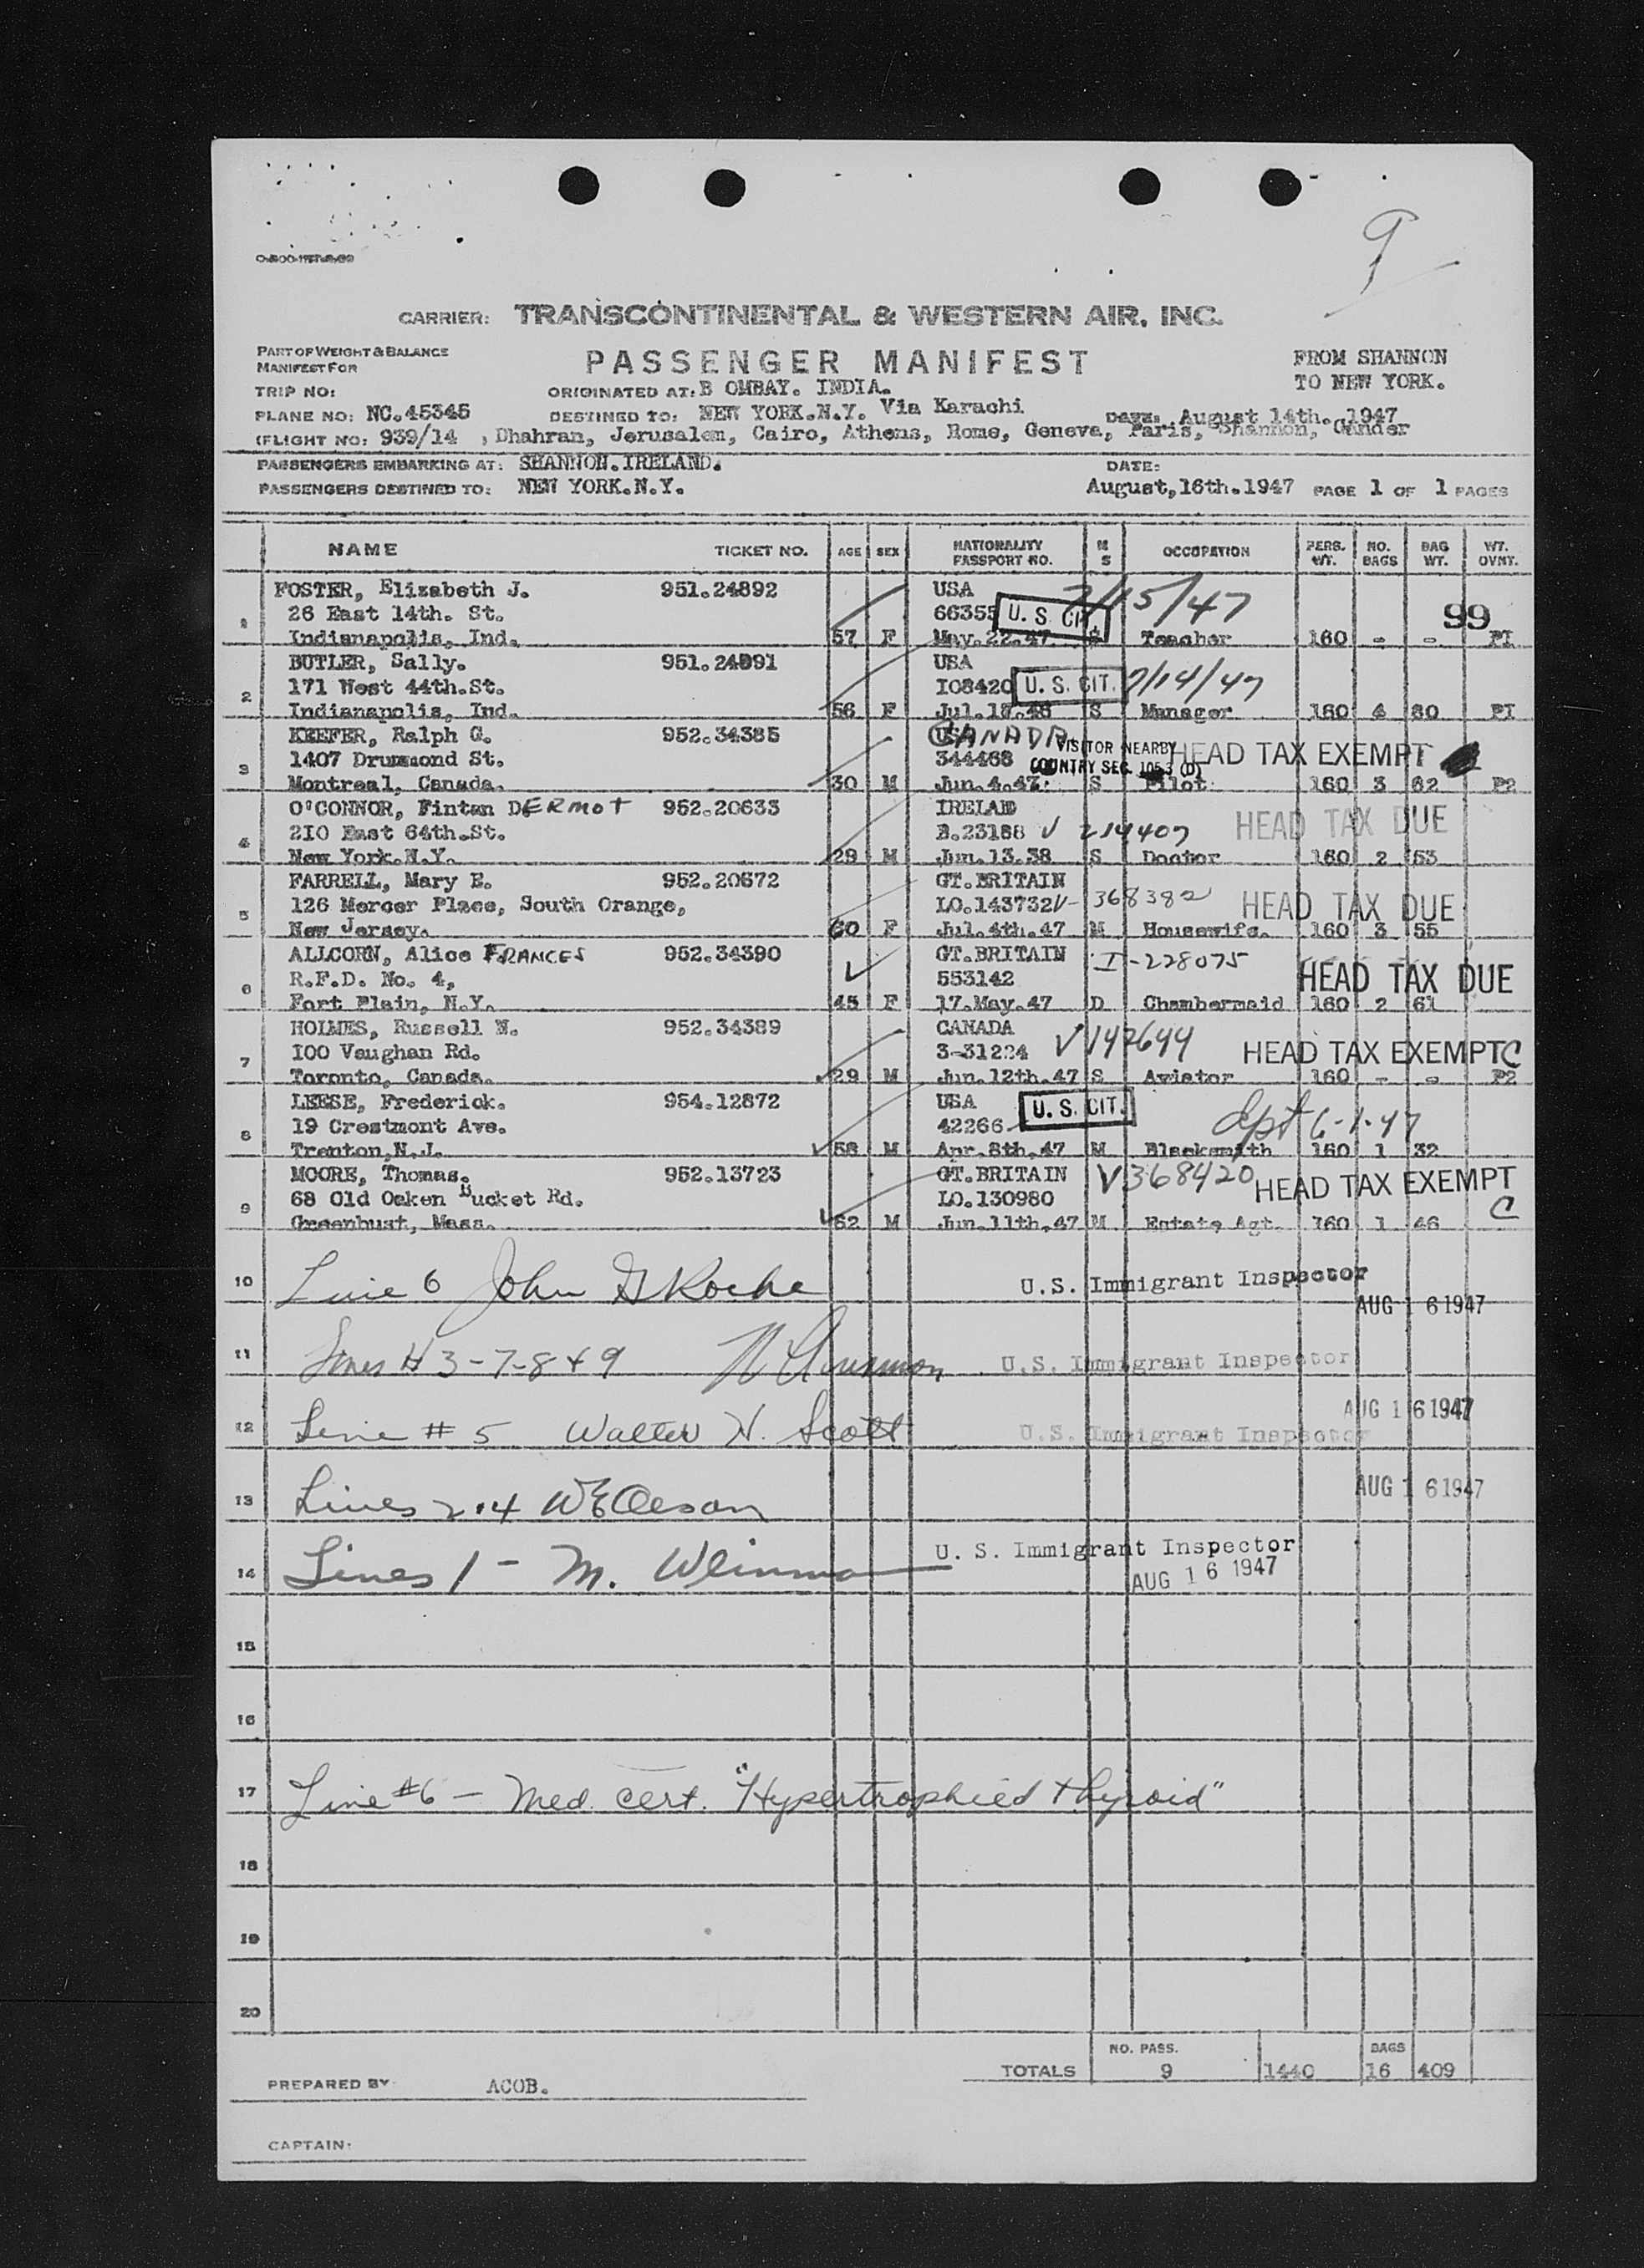 9
CARRIER: TRANSCONTINENTAL & WESTERN AIR, INC.
PART OF WEIGHT & BALANCE
MANIFEST FOR
PASSENGER MANIFEST
FROM SHANNON
TO NEW YORK.
TRIP NO:
ORIGINATED AT: B OMBAY. INDIA.
PLANE NO: NC.45345
DESTINED TO: NEW YORK.N.Y. Via Karachi
DATE: August 14th. 1947
(FLIGHT NO: 939/14 , Dhahran, Jerusalem, Cairo, Athens, Rome, Geneva, Paris, Shannon, Gander
PASSENGERS EMBARKING AT: SHANNON.IRELAND.
DATE:
PASSENGERS DESTINED TO: NEW YORK.N.Y.
August,16th.1947 PAGE 1 OF 1 PAGES
NAME TICKET NO. AGE SEX NATIONALITY PASSPORT NO. M S OCCUPATION PERS. WT. NO. BAGS BAG WT. WT. OVNT.
FOSTER, Elizabeth J. 951.24892 USA 7/15/47
1 26 East 14th. St. 66355 U. S. CIT. 99
Indianapolis, Ind. 57 F May.22.47 S Teacher 160 - - PI
BUTLER, Sally. 951.24891 USA
2 171 West 44th.St. I08420 U. S. CIT. 7/14/47
Indianapolis, Ind. 56 F Jul.18.46 S Manager 160 4 80 PI
KEEFER, Ralph G. 952.34385 USA CANADA
3 1407 Drummond St. 344468 VISITOR NEARBY COUNTRY SEC. HEAD TAX EXEMPT
Montreal, Canada. 30 M Jun.4.47. S Pilot 160 3 82 P2
O'CONNOR, Fintan DERMOT 952.20633 IRELAND
4 2I0 East 64th.St. B.23188 V 214407 HEAD TAX DUE
New York.N.Y. 29 M Jun.13.38 S Doctor 160 2 53
FARRELL, Mary E. 952.20672 GT.BRITAIN
5 126 Mercer Place, South Orange, LO.143732 V- 368382 HEAD TAX DUE
New Jersey. 60 F Jul.4th.47 M Housewife. 160 3 55
ALLCORN, Alice FRANCES 952.34390 GT.BRITAIN I-228075
6 R.F.D. No. 4, 553142 HEAD TAX DUE
Fort Plain, N.Y. 45 F 17.May.47 D Chambermaid 160 2 61
HOLMES, Russell W. 952.34389 CANADA
7 I00 Vaughan Rd. 3-31224 V142644 HEAD TAX EXEMPT C
Toronto, Canada. 29 M Jun.12th.47 S Aviator 160 - - P2
LEESE, Frederick. 954.12872 USA U. S. CIT.
8 19 Crestmont Ave. 42266 Dpt 6-1-47
Trenton,N.J. 58 M Apr.8th.47 M Blacksmith 160 1 32
MOORE, Thomas. 952.13723 GT.BRITAIN V368420
9 68 Old Oaken Bucket Rd. LO.130980 HEAD TAX EXEMPT
Greenbust, Mass. 62 M Jun.11th.47 M Estate Agt. 160 1 46 C
10 Line 6 John Roche U.S. Immigrant Inspector
AUG 16 1947
11 Lines # 3-7-8 & 9 U.S. Immigrant Inspector
AUG 16 1947
12 Line # 5 Walter H. Scott U.S. Immigrant Inspector
13 Lines 2·4 AUG 16 1947
14 Lines 1 - M. U. S. Immigrant Inspector
AUG 16 1947
15
16
17 Line #6 - Med. cert. "Hypertrophied thyroid"
18
19
20
TOTALS NO. PASS. 9 1440 BAGS 16 409
PREPARED BY: ACOB.
CAPTAIN: